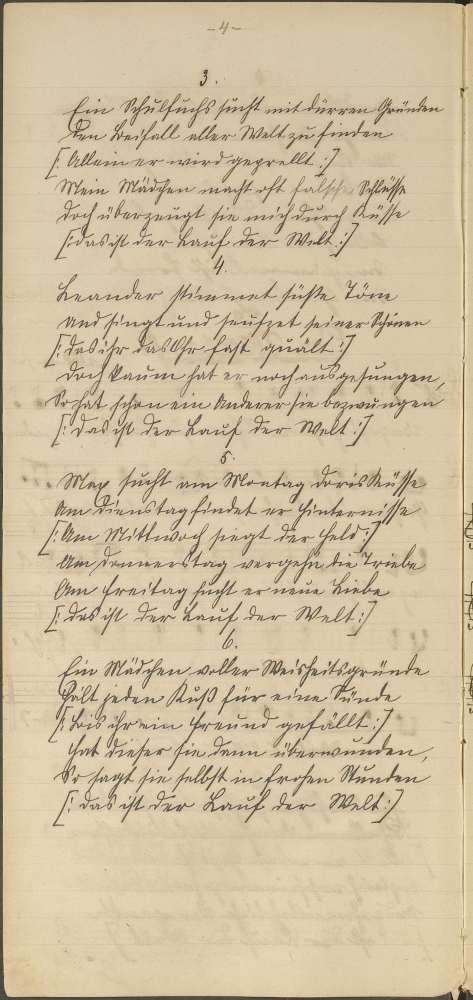 -4-
3.
Ein Schulfuchs sucht mit dürren Gründen
Den Beifall aller Welt zu finden
[: Allein er wird geprellt :]
Mein Mädchen macht oft falsche Schlüsse
Doch überzeugt sie mich durch Küsse
[: das ist der Lauf der Welt :]
4.
Leander stimmet süße Töne
Und singt und seufzet seiner Schönen
[: Das ihr das Ohr fast quält :]
Doch kaum hat er noch ausgesungen,
So hat schon ein Anderer sie bezwungen
[: Das ist der Lauf der Welt :]
5.
Max sucht am Montag Doris Küsse
Am Dienstag findet er Hinternisse
[: Am Mittwoch siegt der Held :]
Am Donnerstag vergehn die Triebe
Am Freitag sucht er neue Liebe
[: Das ist der Lauf der Welt :]
6.
Ein Mädchen voller Weisheitsgründe
Hält jeden Kuß für eine Sünde
[: Bis ihr ein Freund gefällt :]
Hat dieser sie dann überwunden,
So sagt sie selbst in frohen Stunden
[: Das ist der Lauf der Welt :]